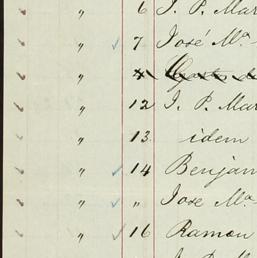 " 6 J. P. Mar
" 7 José Ma.
"
" 12 J. P. Mar
" 13 idem
" 14 Benjan
" " Jose Ma.
" 16 Ramon